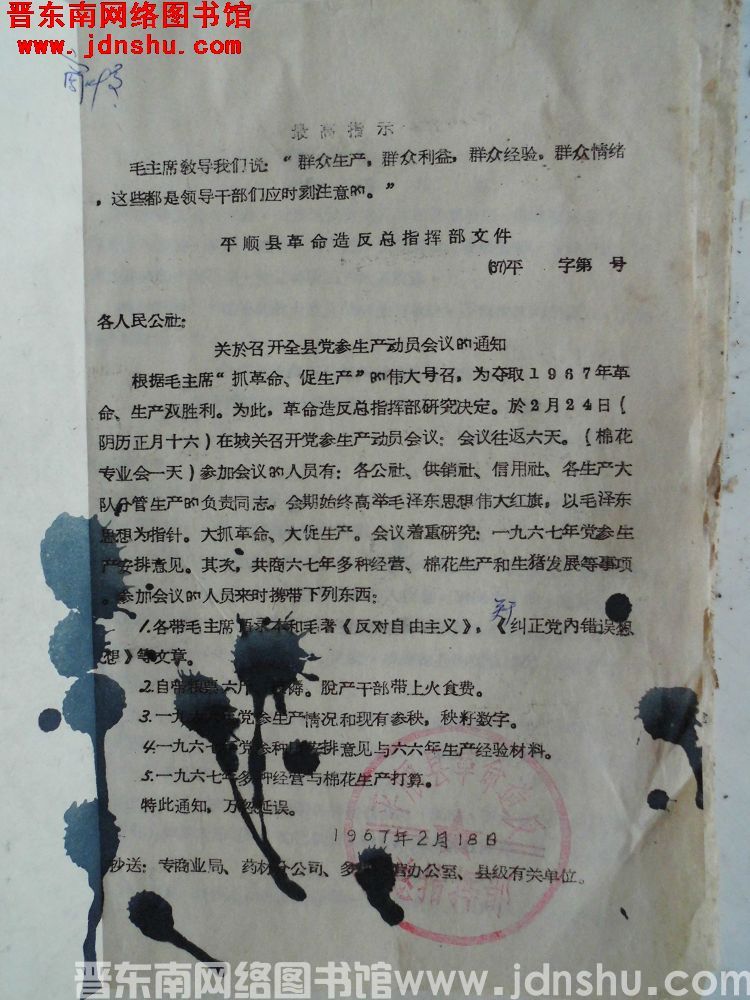 晋东南网络图书馆
www.jdnshu.com
最高指示
毛主席教导我们说：“群众生产，群众利益，群众经验，群众情绪
，这些都是领导干部们应时刻注意的。”
平顺县革命造反总指挥部文件
(67)平 字第 号
各人民公社：
关於召开全县党参生产动员会议的通知
根据毛主席“抓革命、促生产”的伟大号召，为夺取1967年革
命、生产双胜利。为此，革命造反总指挥部研究决定。於2月24日（
阴历正月十六）在城关召开党参生产动员会议：会议往返六天。（棉花
专业会一天）参加会议的人员有：各公社、供销社、信用社、各生产大
队分管生产的负责同志。会期始终高举毛泽东思想伟大红旗，以毛泽东
思想为指针。大抓革命、大促生产。会议着重研究：一九六七年党参生
产安排意见。其次，共商六七年多种经营、棉花生产和生猪发展等事项
。参加会议的人员来时携带下列东西：
1.各带毛主席语录本和毛著《反对自由主义》，《纠正党内错误思
想》等文章。
2.自带粮票六斤 。脱产干部带上火食费。
3.一九六六年党参生产情况和现有参秧，秧籽数字。
4.一九六七年党参种 安排意见与六六年生产经验材料。
5.一九六七年多种经营与棉花生产打算。
特此通知，万勿延误。
1967年2月18日
抄送：专商业局、药材分公司、多 办公室、县级有关单位。
晋东南网络图书馆www.jdnshu.com